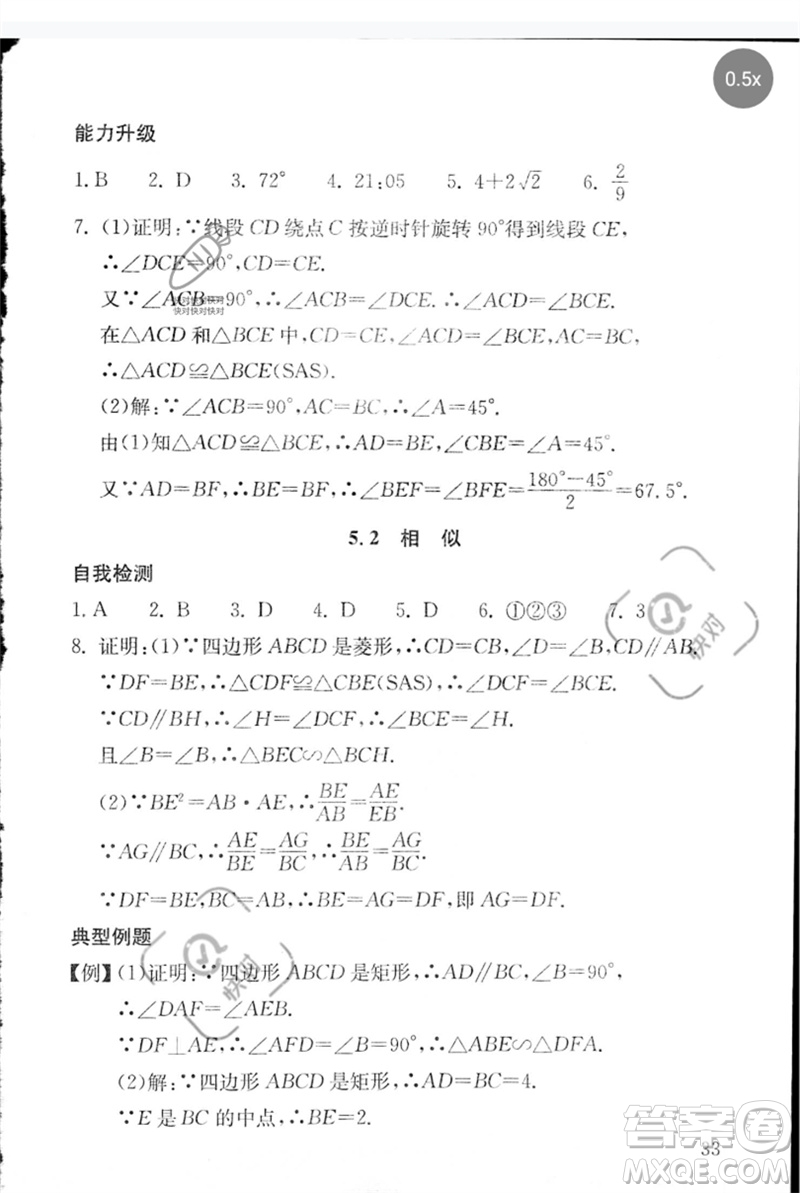 0.5x
能力升级
1. B 2. D 3. 72° 4. 21:05 5. 4+2√2 6. 2/9
7. (1)证明:∵线段 CD 绕点 C 按逆时针旋转 90°得到线段 CE,
∴∠DCE=90°,CD=CE.
又∵∠ACB=90°,∴∠ACB=∠DCE.∴∠ACD=∠BCE.
在△ACD 和△BCE 中,CD=CE,∠ACD=∠BCE,AC=BC,
∴△ACD≌△BCE(SAS).
(2)解:∵∠ACB=90°,AC=BC,∴∠A=45°.
由(1)知△ACD≌△BCE,∴AD=BE,∠CBE=∠A=45°.
又∵AD=BF,∴BE=BF.∴∠BEF=∠BFE=(180°-45°)/2=67.5°.
5.2 相 似
自我检测
1. A 2. B 3. D 4. D 5. D 6. ①②③ 7. 3
8. 证明:(1)∵四边形 ABCD 是菱形,∴CD=CB,CD∥AB.
∵DF=BE,∴△CDF≌△CBE(SAS).∴∠DCF=∠BCE.
∵CD∥BH,∴∠H=∠DCF,∴∠BCE=∠H.
且∠B=∠B,∴△BEC∽△BCH.
(2)∵BE²=AB·AE,∴BE/AB=AE/EB.
∵AG∥BC,∴AE/BE=AG/BC,∴BE/AB=AG/BC.
∵DF=BE,BC=AB,∴BE=AG=DF,即 AG=DF.
典型例题
【例】(1)证明:∵四边形 ABCD 是矩形,∴AD∥BC,∠B=90°,
∴∠DAF=∠AEB.
∵DF⊥AE,∴∠AFD=∠B=90°,∴△ABE∽△DFA.
(2)解:∵四边形 ABCD 是矩形,∴AD=BC=4.
∵E 是 BC 的中点,∴BE=2.
33
快对
快对
答案圈
MXQE.COM